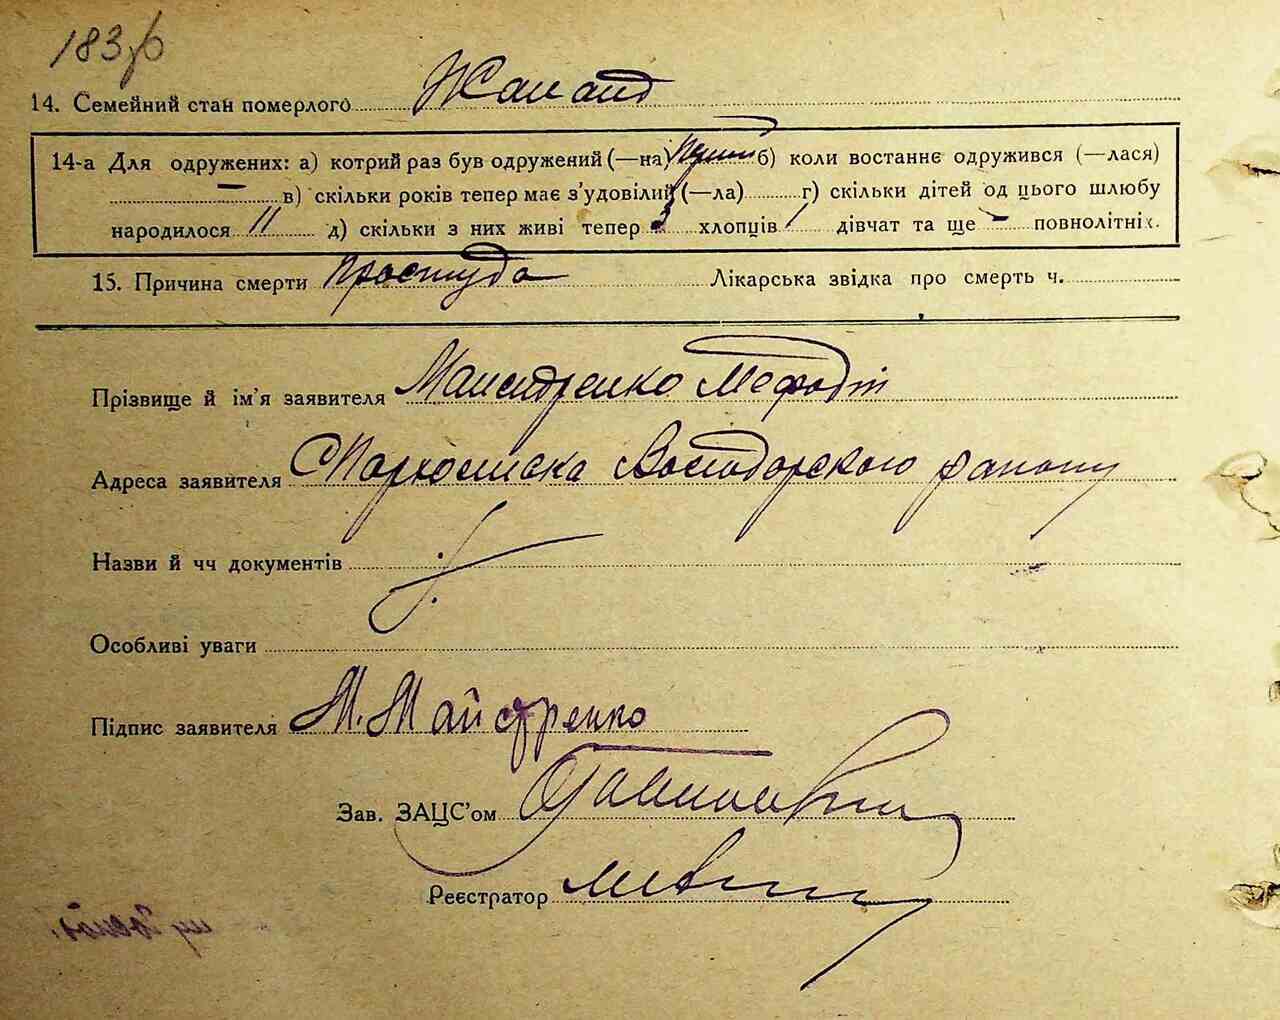 183
14. Семейний стан померлого Жанат
14-а Для одружених: а) котрий раз був одружений (—на) б) коли востаннє одружився (—лася)
— в) скільки років тепер має з'удовілий (—ла) г) скільки дітей од цього шлюбу
народилося 11 д) скільки з них живі тепер 3 хлопців 1 дівчат та ще — повнолітніх.
15. Причина смерти Простуда Лікарська звідка про смерть ч.
Прізвище й ім'я заявителя Майстренко Мефодій
Адреса заявителя району
Назви й чч документів
Особливі уваги
Підпис заявителя М. Майстренко
Зав. ЗАЦС'ом
Реєстратор